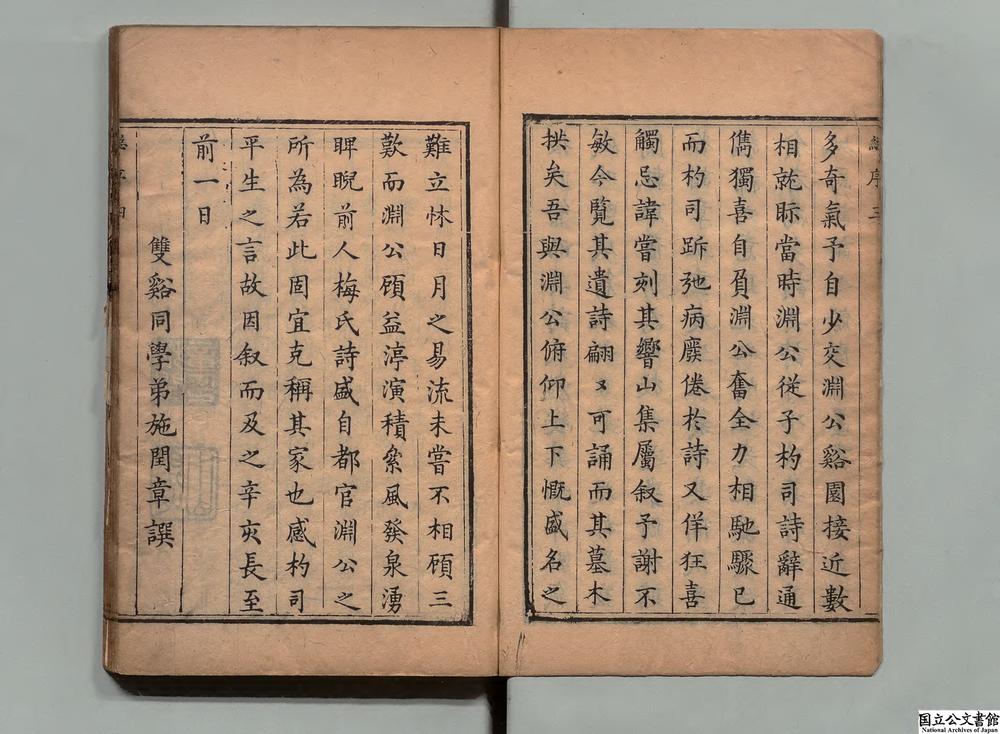 總序三
多奇氣予自少交淵公谿園接近數
相就眎當時淵公從子杓司詩辭通
儁獨喜自負淵公奮全力相馳驟已
而杓司跅弛病廢倦於詩又佯狂喜
觸忌諱嘗刻其響山集屬叙予謝不
敏今覽其遺詩翩〻可誦而其墓木
拱矣吾與淵公俯仰上下慨盛名之
難立怵日月之易流未嘗不相顧三
歎而淵公頎益渟演積絫風發泉湧
睥睨前人梅氏詩盛自都官淵公之
所為若此固宜克稱其家也感杓司
平生之言故因叙而及之辛亥長至
前一日
雙谿同學弟施閏章譔
國立公文書館
National Archives of Japan